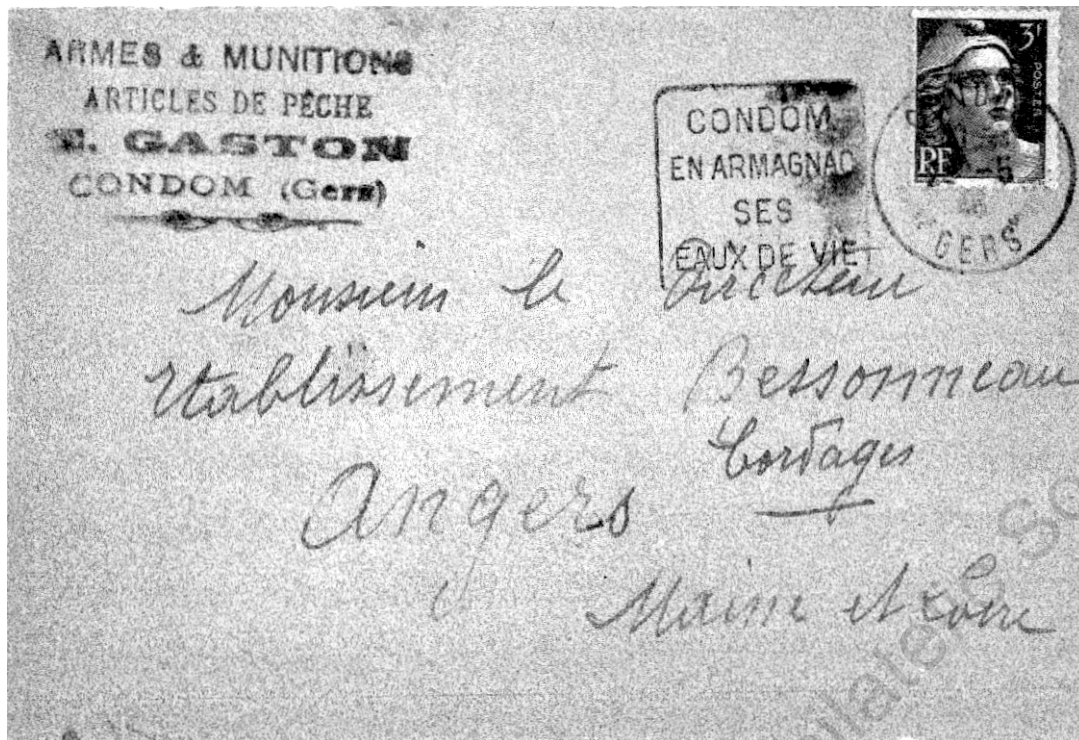 ARMES & MUNITIONS
ARTICLES DE PÊCHE
E. GASTON
CONDOM (Gers)
CONDOM
EN ARMAGNAC
SES
EAUX DE VIE
3F
POSTES
RF
GERS
Monsieur le Directeur
Etablissement Bessonneau
Cordages
Angers
Maine et Loire